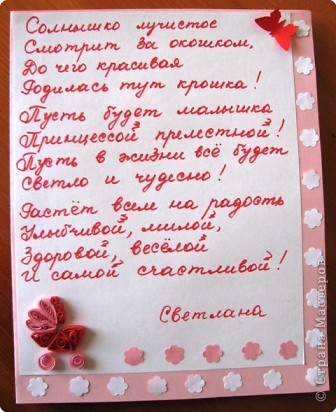 Солнышко лучистое
Смотрит за окошком,
До чего красивая
Родилась тут крошка!
Пусть будет малышка
Принцессой прелестной!
Пусть в жизни всё будет
Светло и чудесно!
Растёт всем на радость
Улыбчивой, милой,
Здоровой, весёлой
И самой счастливой!
Светлана
© Страна Мастеров